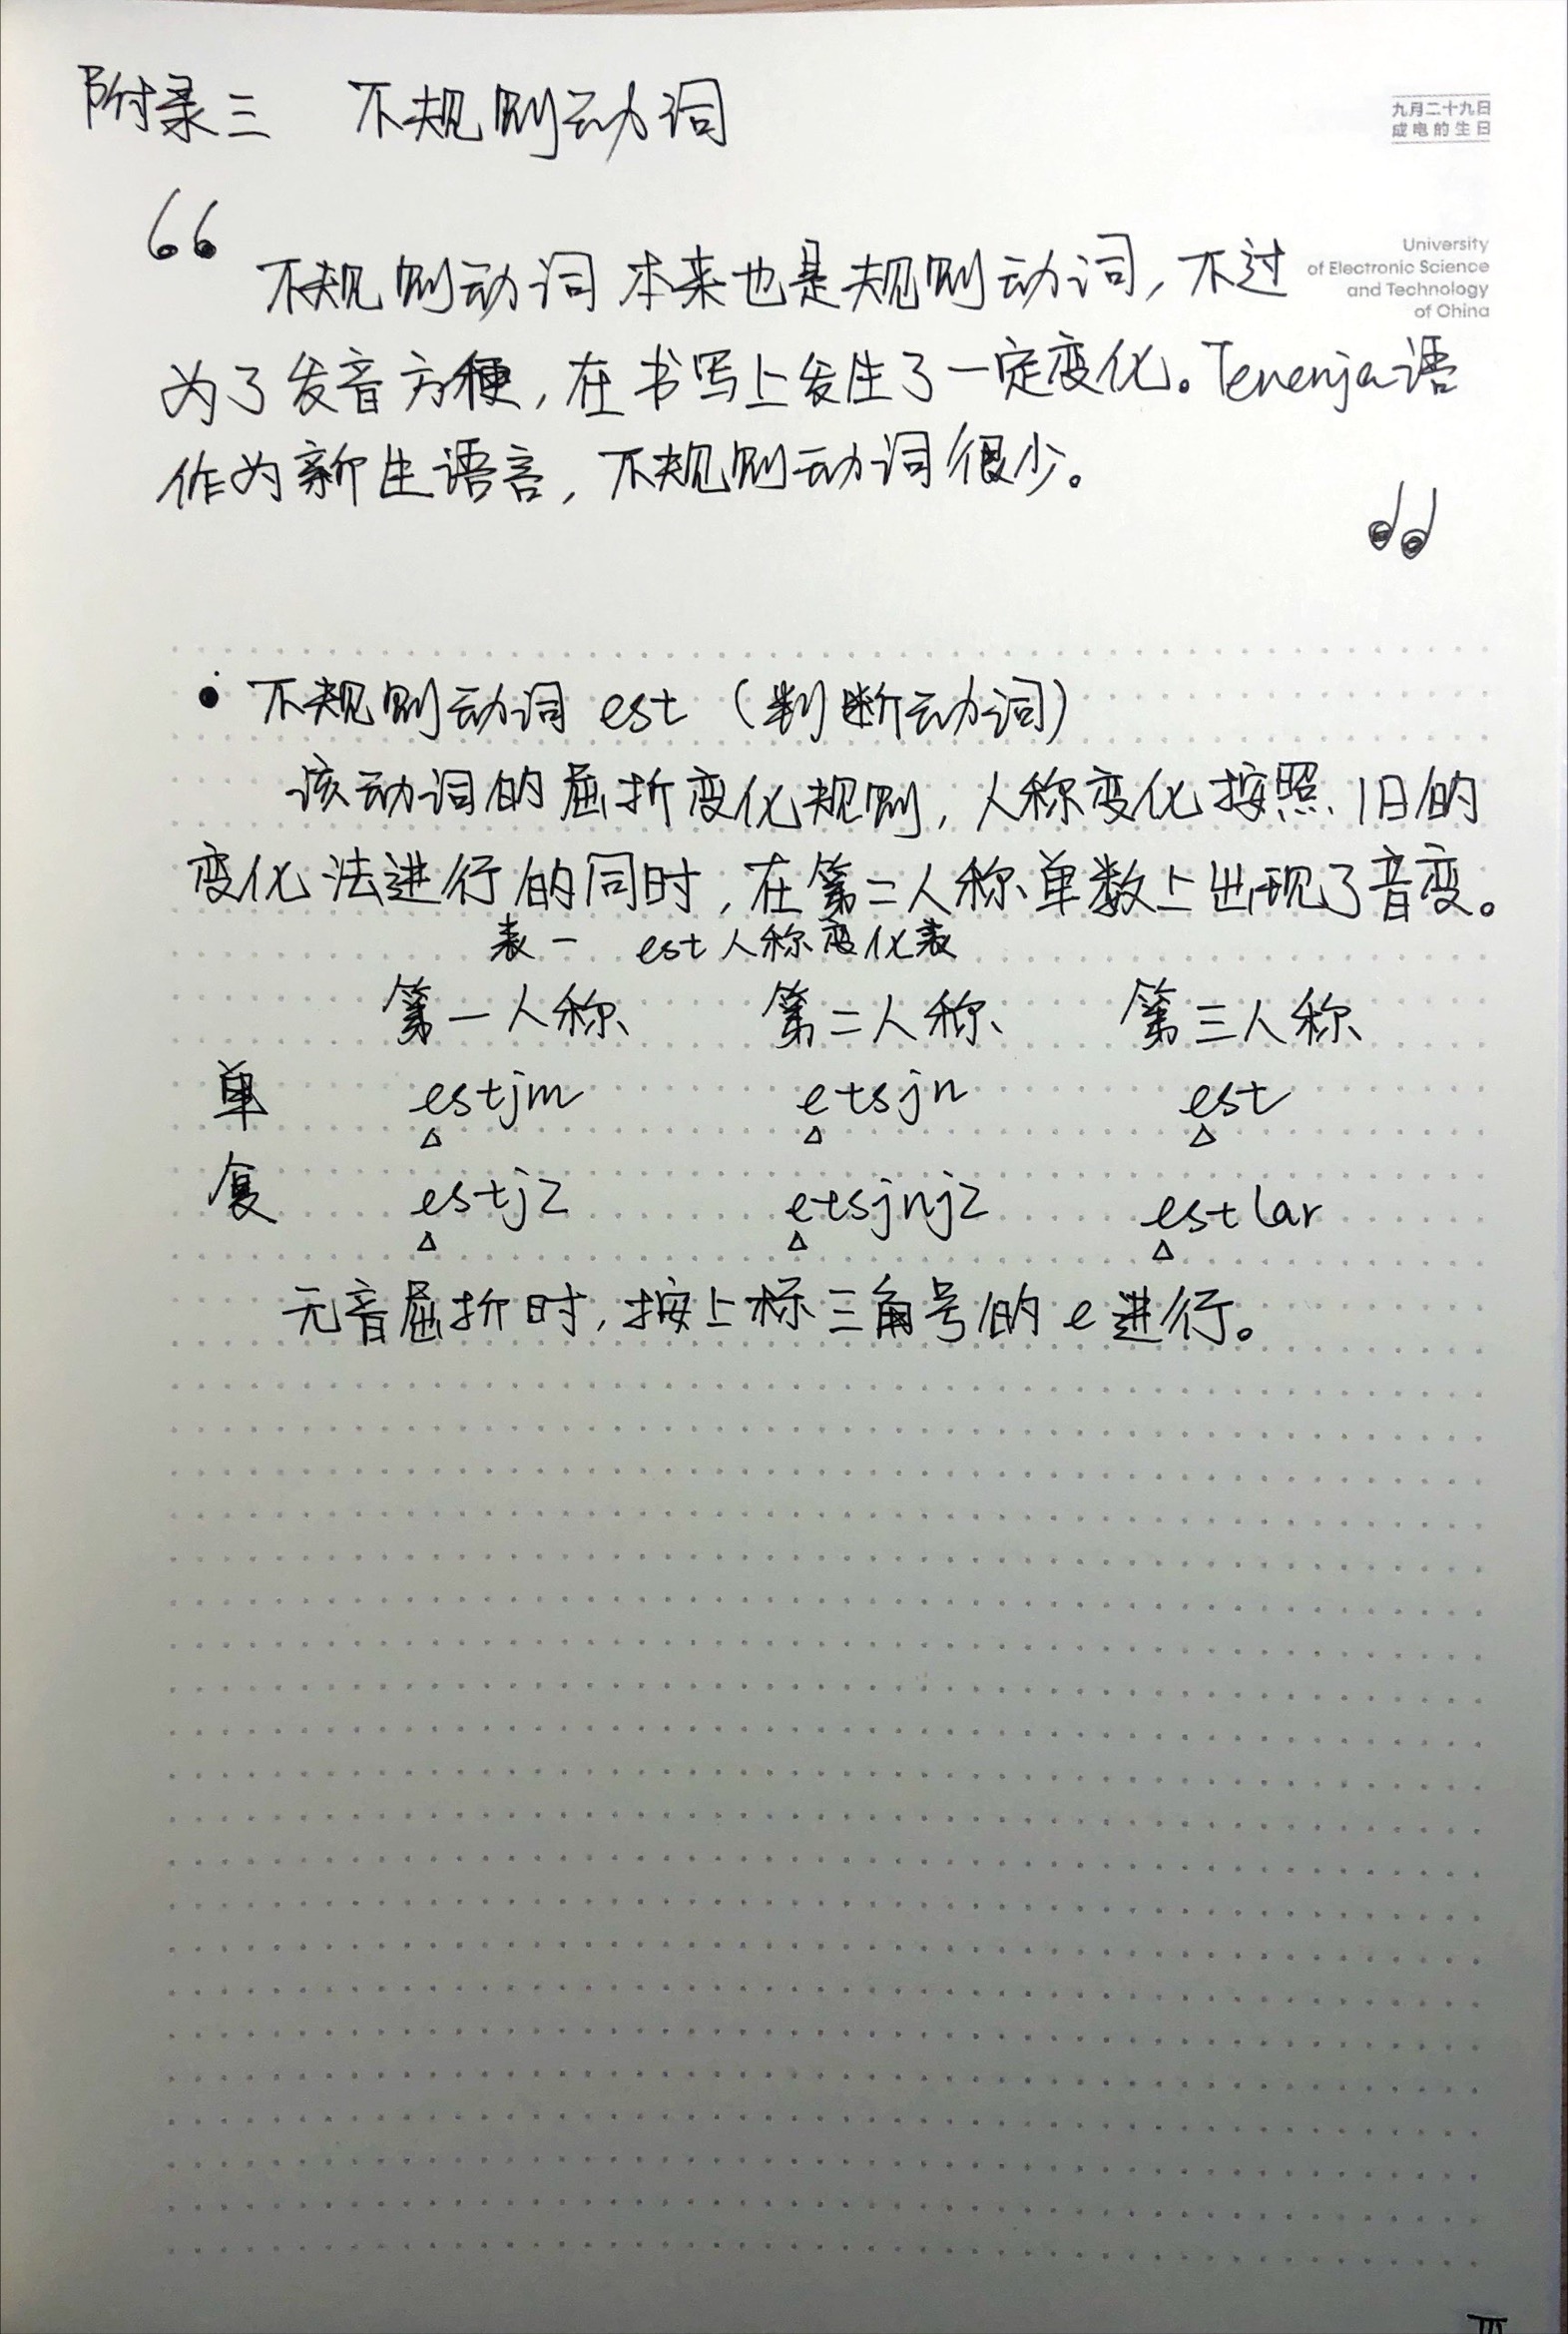 附录三 不规则动词
九月二十九日
成电的生日
University
of Electronic Science
and Technology
of China
“不规则动词本来也是规则动词,不过
为了发音方便,在书写上发生了一定变化。Tenenja语
作为新生语言,不规则动词很少。”
• 不规则动词 est (判断动词)
该动词的屈折变化规则,人称变化按照旧的
变化法进行的同时,在第二人称单数上出现了音变。
表一 est人称变化表
第一人称 第二人称 第三人称
单 estjm etsjn est
△ △ △
复 estjz etsjnjz estlar
△ △ △
元音屈折时,按上标三角号的e进行。
III